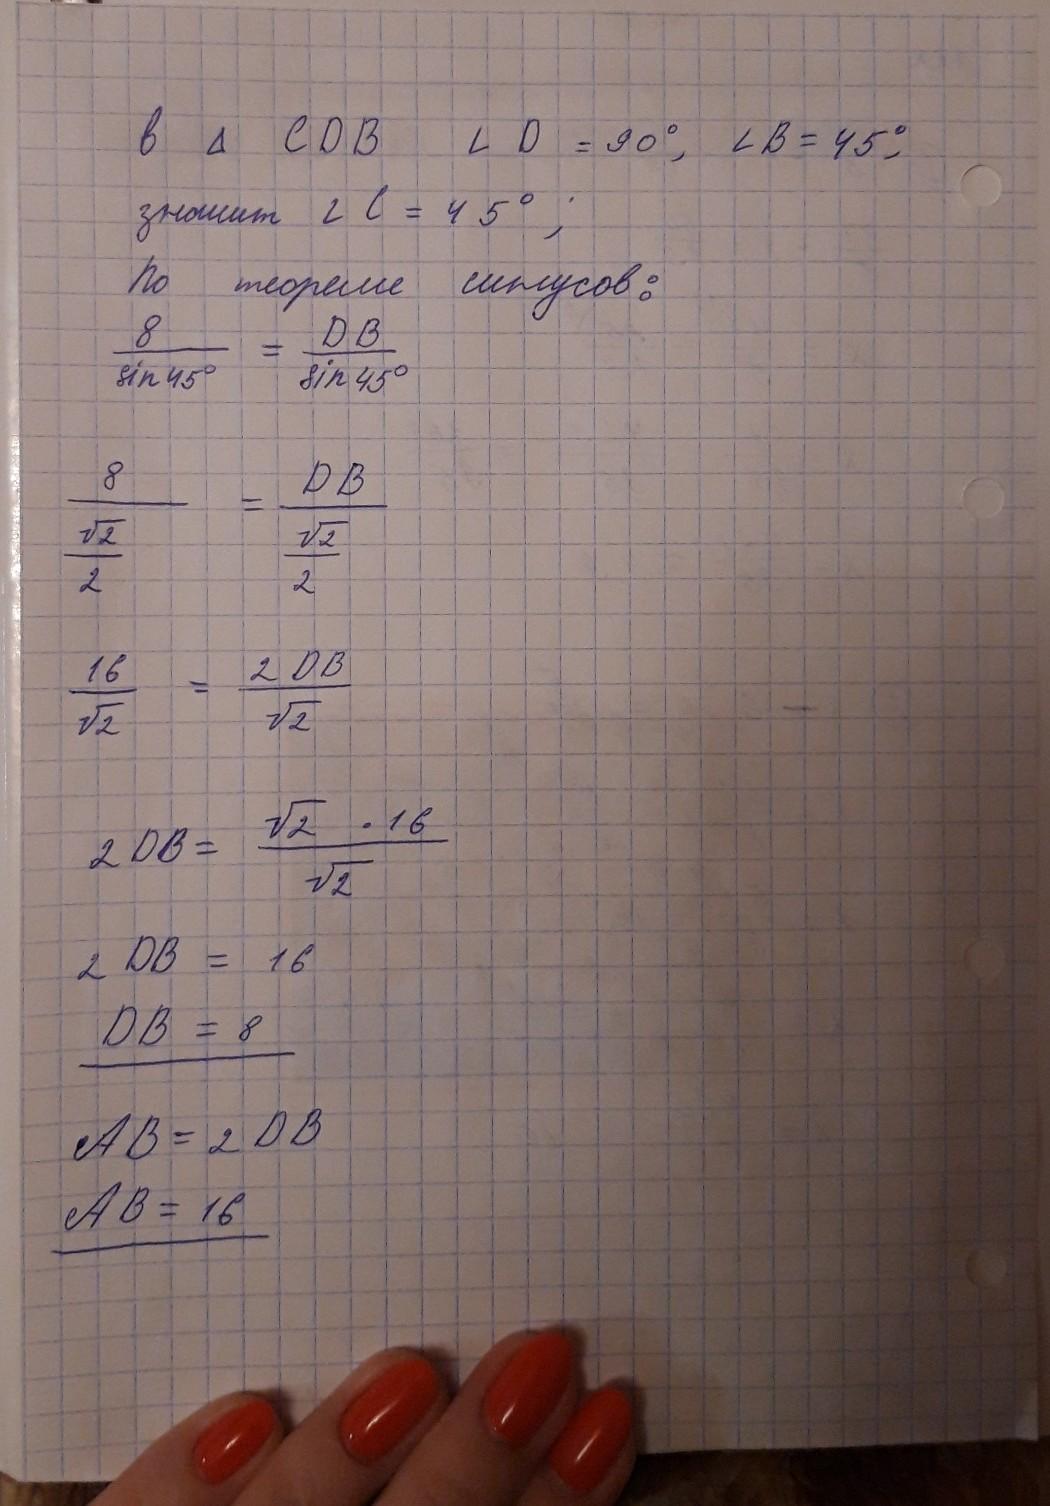 в Δ CDB ∠D = 90°, ∠B = 45°,
значит ∠C = 45°;
По теореме синусов:
8/sin45° = DB/sin45°
8/(√2/2) = DB/(√2/2)
16/√2 = 2DB/√2
2DB = (√2 · 16)/√2
2DB = 16
DB = 8
AB = 2DB
AB = 16